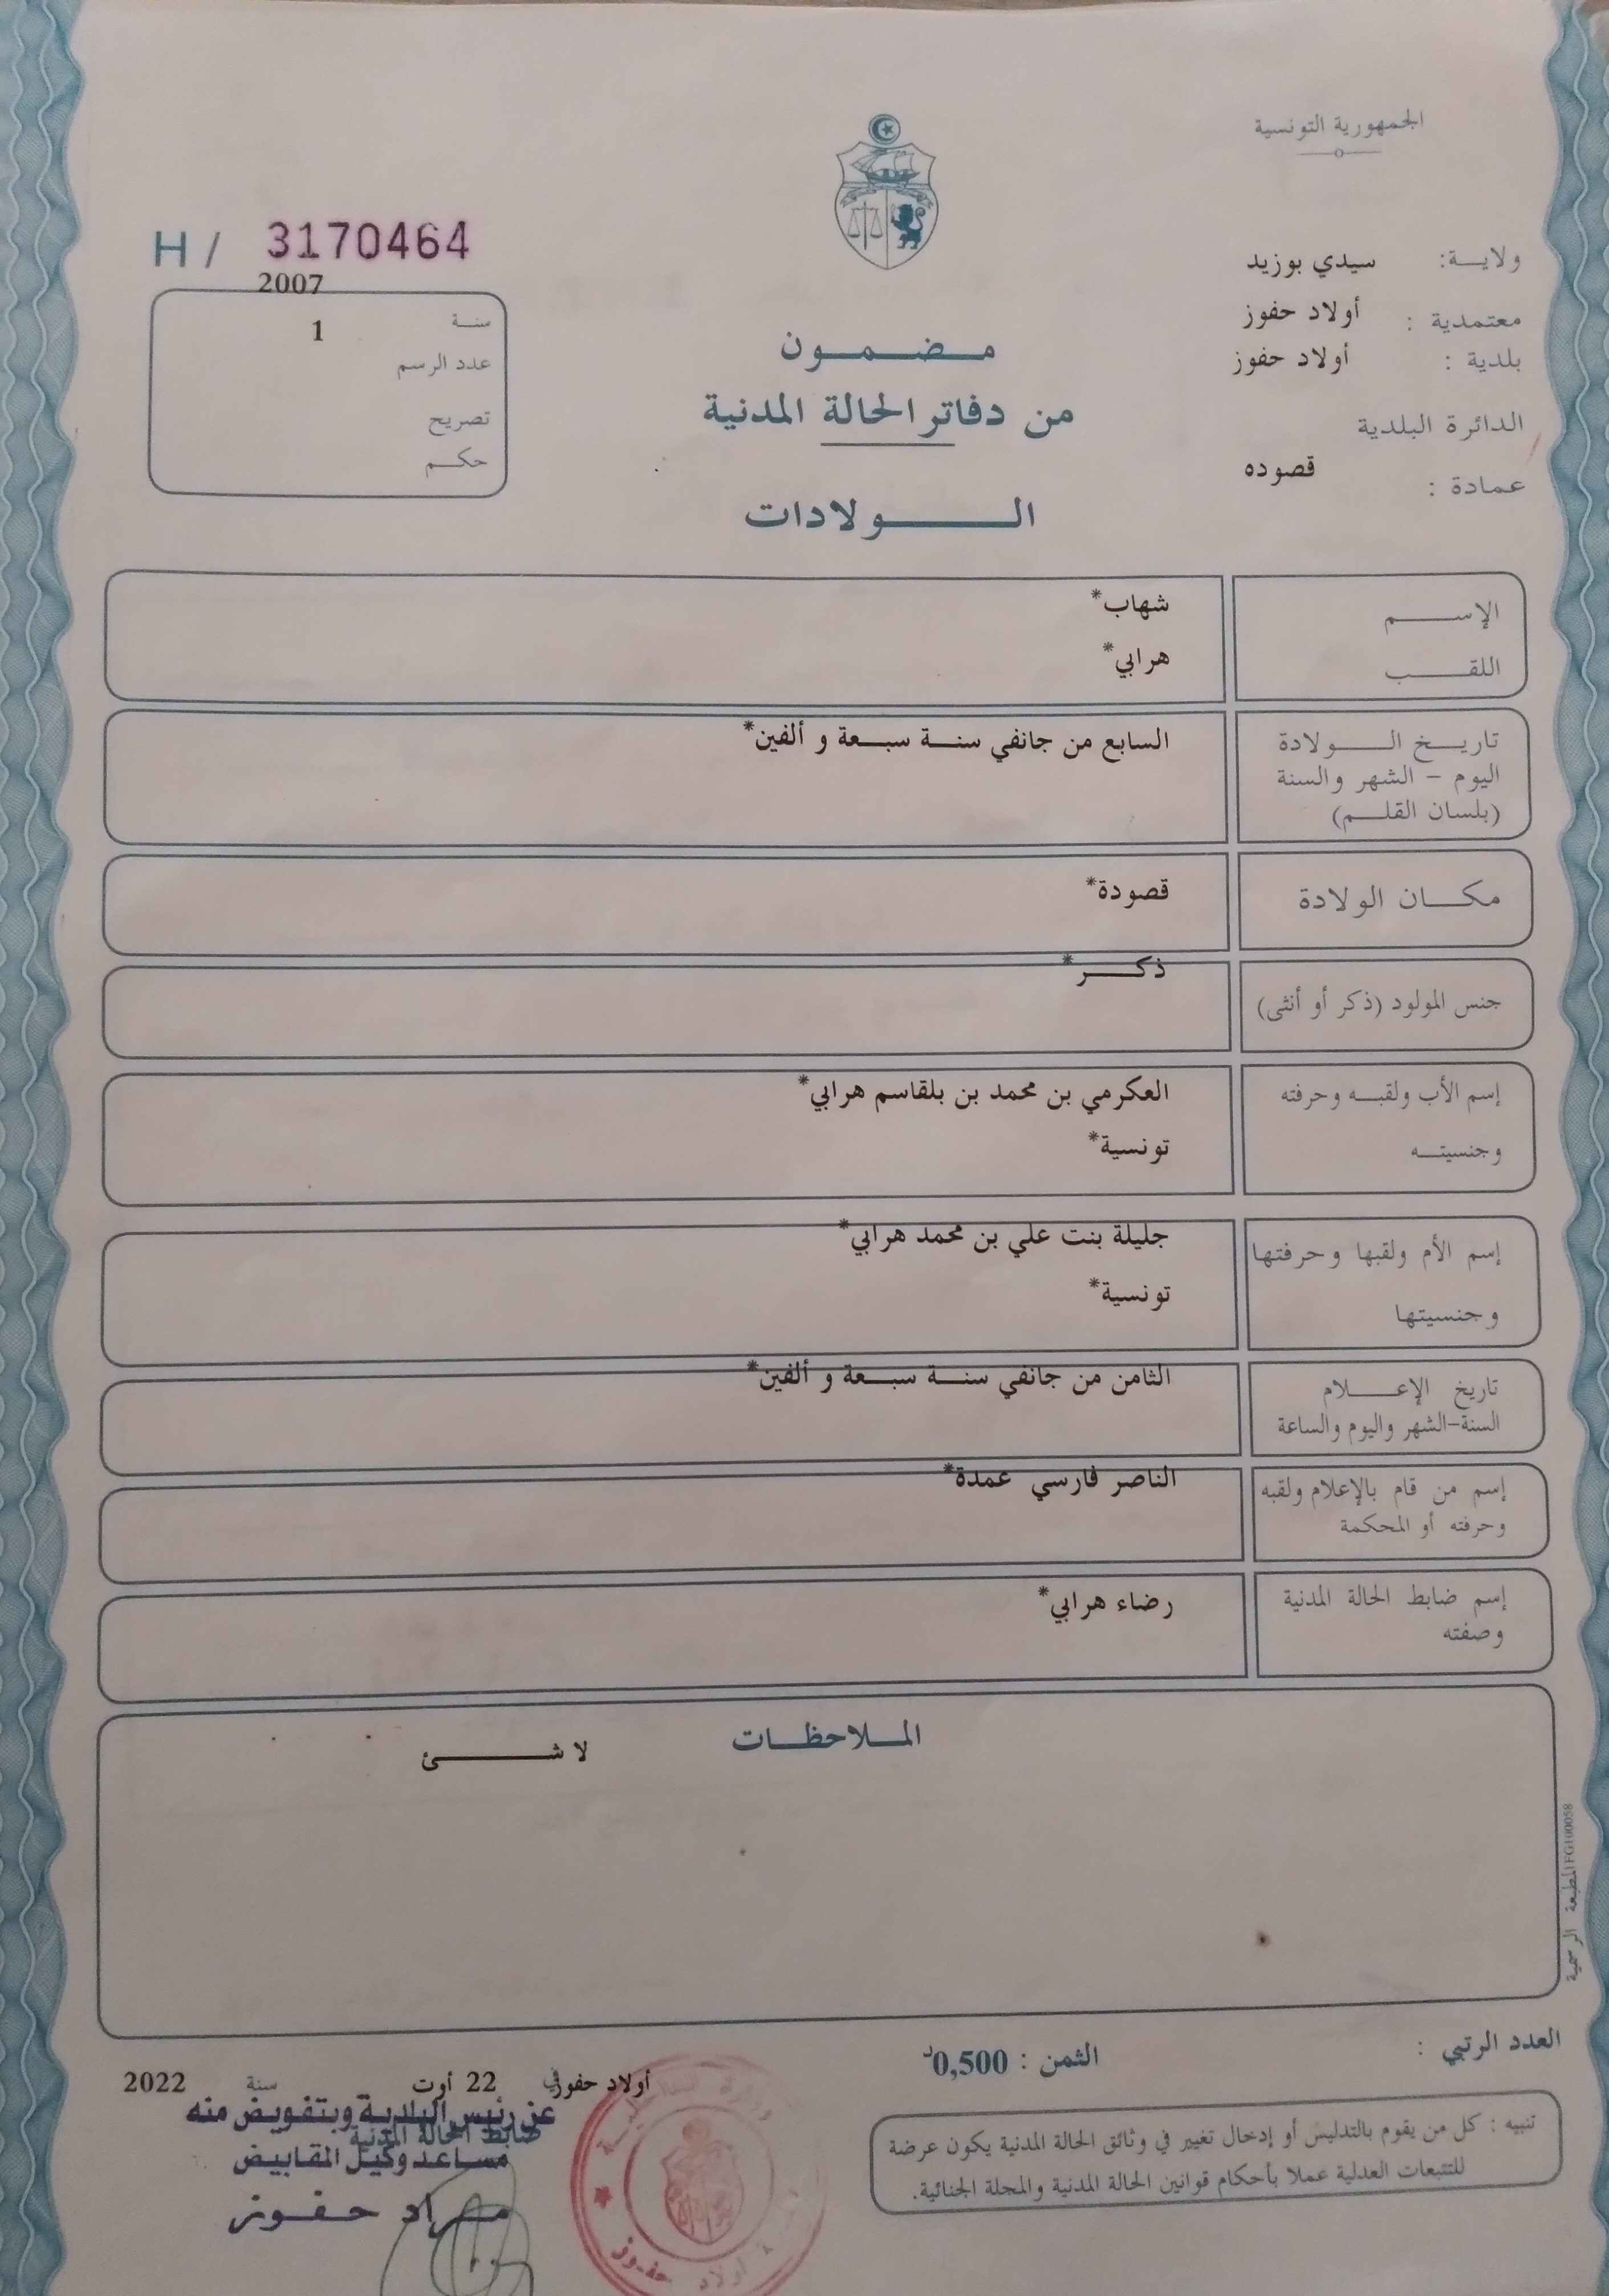 الجمهورية التونسية
H / 3170464
2007
سنة
1
عدد الرسم
تصريح
حكم
ولاية: سيدي بوزيد
معتمدية : أولاد حفوز
بلدية : أولاد حفوز
الدائرة البلدية
عمادة : قصوده
مضمون
من دفاتر الحالة المدنية
الولادات
الإسم شهاب*
اللقب هرابي*
تاريخ الولادة السابع من جانفي سنة سبعة و ألفين*
اليوم - الشهر والسنة
(بلسان القلم)
مكان الولادة قصودة*
جنس المولود (ذكر أو أنثى) ذكر*
إسم الأب ولقبه وحرفته العكرمي بن محمد بن بلقاسم هرابي*
وجنسيته تونسية*
إسم الأم ولقبها وحرفتها جليلة بنت علي بن محمد هرابي*
وجنسيتها تونسية*
تاريخ الإعلام الثامن من جانفي سنة سبعة و ألفين*
السنة-الشهر واليوم والساعة
إسم من قام بالإعلام ولقبه الناصر فارسي عمدة*
وحرفته أو المحكمة
إسم ضابط الحالة المدنية رضاء هرابي*
وصفته
الملاحظات
لا شئ
المطبعة الرسمية FG100058
العدد الرتبي :
الثمن : 0,500د
أولاد حفوز في 22 أوت سنة 2022
عن رئيس البلدية وبتفويض منه
ضابط الحالة المدنية
مساعد وكيل المقابيض
مراد حفوز
تنبيه : كل من يقوم بالتدليس أو إدخال تغيير في وثائق الحالة المدنية يكون عرضة
للتتبعات العدلية عملا بأحكام قوانين الحالة المدنية والمجلة الجنائية.
أولاد حفوز